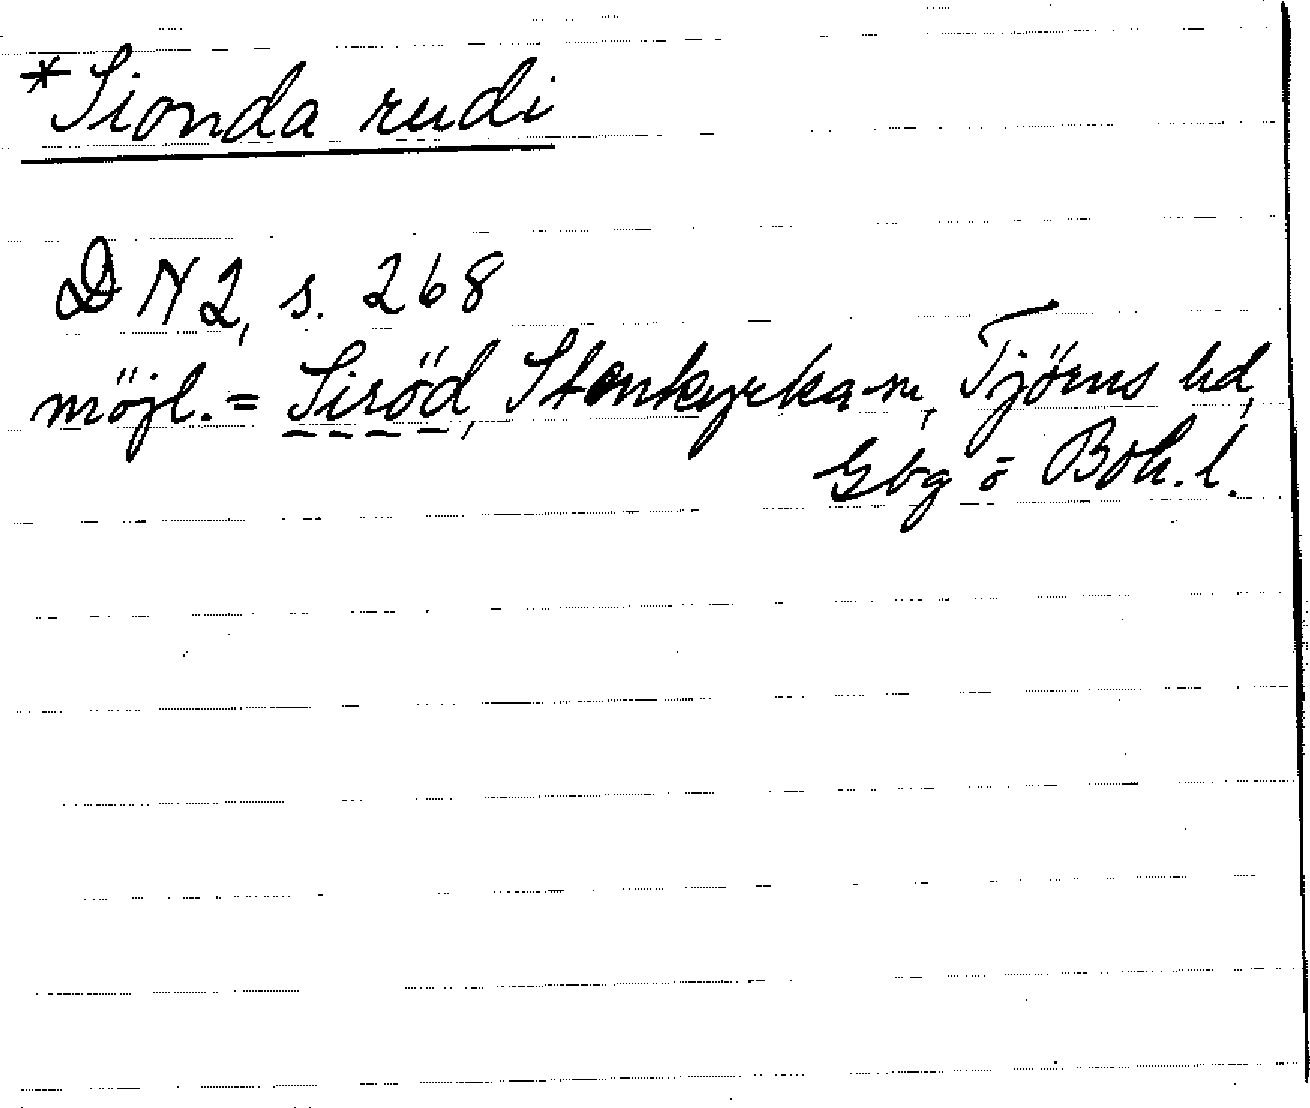 *Sionda rudi
DN 2, s. 268
möjl. = Siröd, Stenkyrka sn, Tjörns hd,
Gbg o Boh. l.